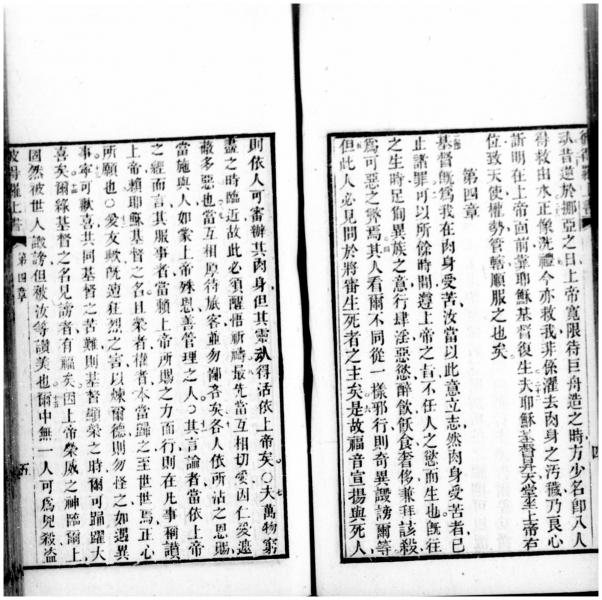 彼得羅上書
四
昔造於挪亞之日上帝寬限待巨舟造之時方少名卽八人
得救由水正像洗禮今亦救我非係濯去肉身之汚穢乃良心
訴明在上帝面前靠耶穌基督復生夫耶穌基督昇天堂坐上帝右
位致天使權勢管轄順服之也矣
第四章
基督旣爲我在肉身受苦汝當以此意立志然肉身受苦者已
止諸罪可以所餘時間遵上帝之旨不任人之慾而生也旣往
之生時足徇異族之意行肆淫惡慾醉飮飫食奢侈兼拜該殺
爲可惡之祟焉其人看爾不同從一樣邪行則奇異譭謗爾等
但此人必見問於將審生死者之主矣是故福音宣揚與死人
則依人可審辦其肉身但其靈得活依上帝矣○夫萬物窮
盡之時臨近故此必須醒悟祈禱最先當互相切愛因仁愛遮
蓋多惡也當互相厚待旅客並勿鄙吝矣各人依所沾之恩賜
當施與人如蒙上帝殊恩善管理之人○其言論者當依上帝
之經而言其服事者當賴上帝所賜之力而行則在凡事稱讚
上帝賴耶穌基督之名且榮者權者本當歸之至世世焉正心
所願也○愛友輩旣遭狂烈之害以煉爾德則勿怪之如遇異
事寧可歡喜共同基督之苦難則基督顯榮之時爾可踊躍大
喜矣爾緣基督之名見謗者有福矣因上帝榮威之神臨爾上
固然被世人譭謗但被汝等讚美也爾中無一人可爲兇殺盜
彼得羅上書
第四章
五